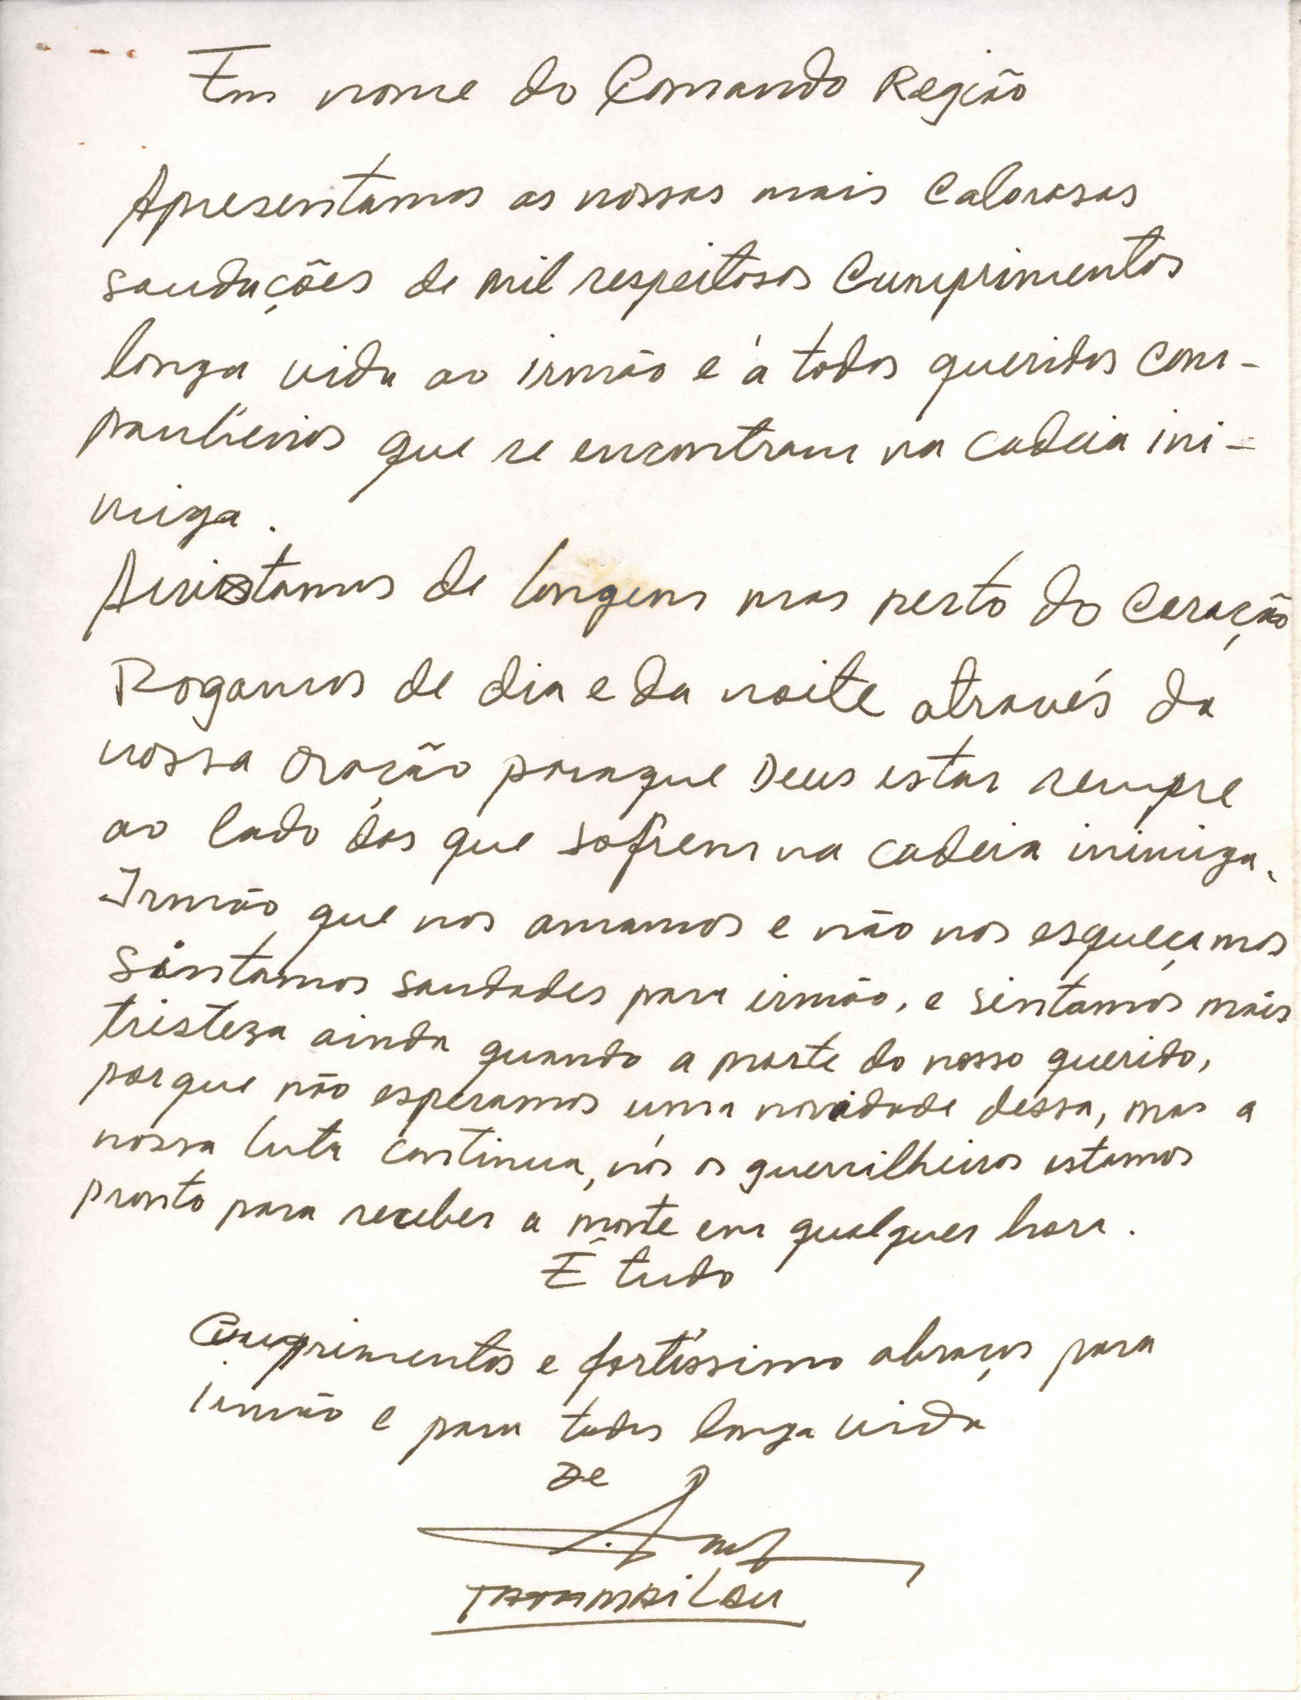 Em nome do Comando Região
Apresentamos as nossas mais calorosas
saudações de mil respeitosos cumprimentos
longa vida ao irmão e á todos queridos com-
panheiros que se encontram na cadeia ini-
miga.
Avistamos de longem mas perto do coração
Rogamos de dia e da noite através da
nossa oração paraque Deus estar sempre
ao lado dos que sofrem na cadeia inimiga.
Irmão que nos amamos e não nos esqueçamos
Sintamos saudades para irmão, e sintamos más
tristeza ainda quando a morte do nosso querido,
porque não esperamos uma novidade dessa, mas a
nossa luta continua, nós os guerrilheiros estamos
pronto para receber a morte em qualquer hora.
É tudo
Cumprimentos e fortíssimo abraços para
irmão e para todos longa vida
De